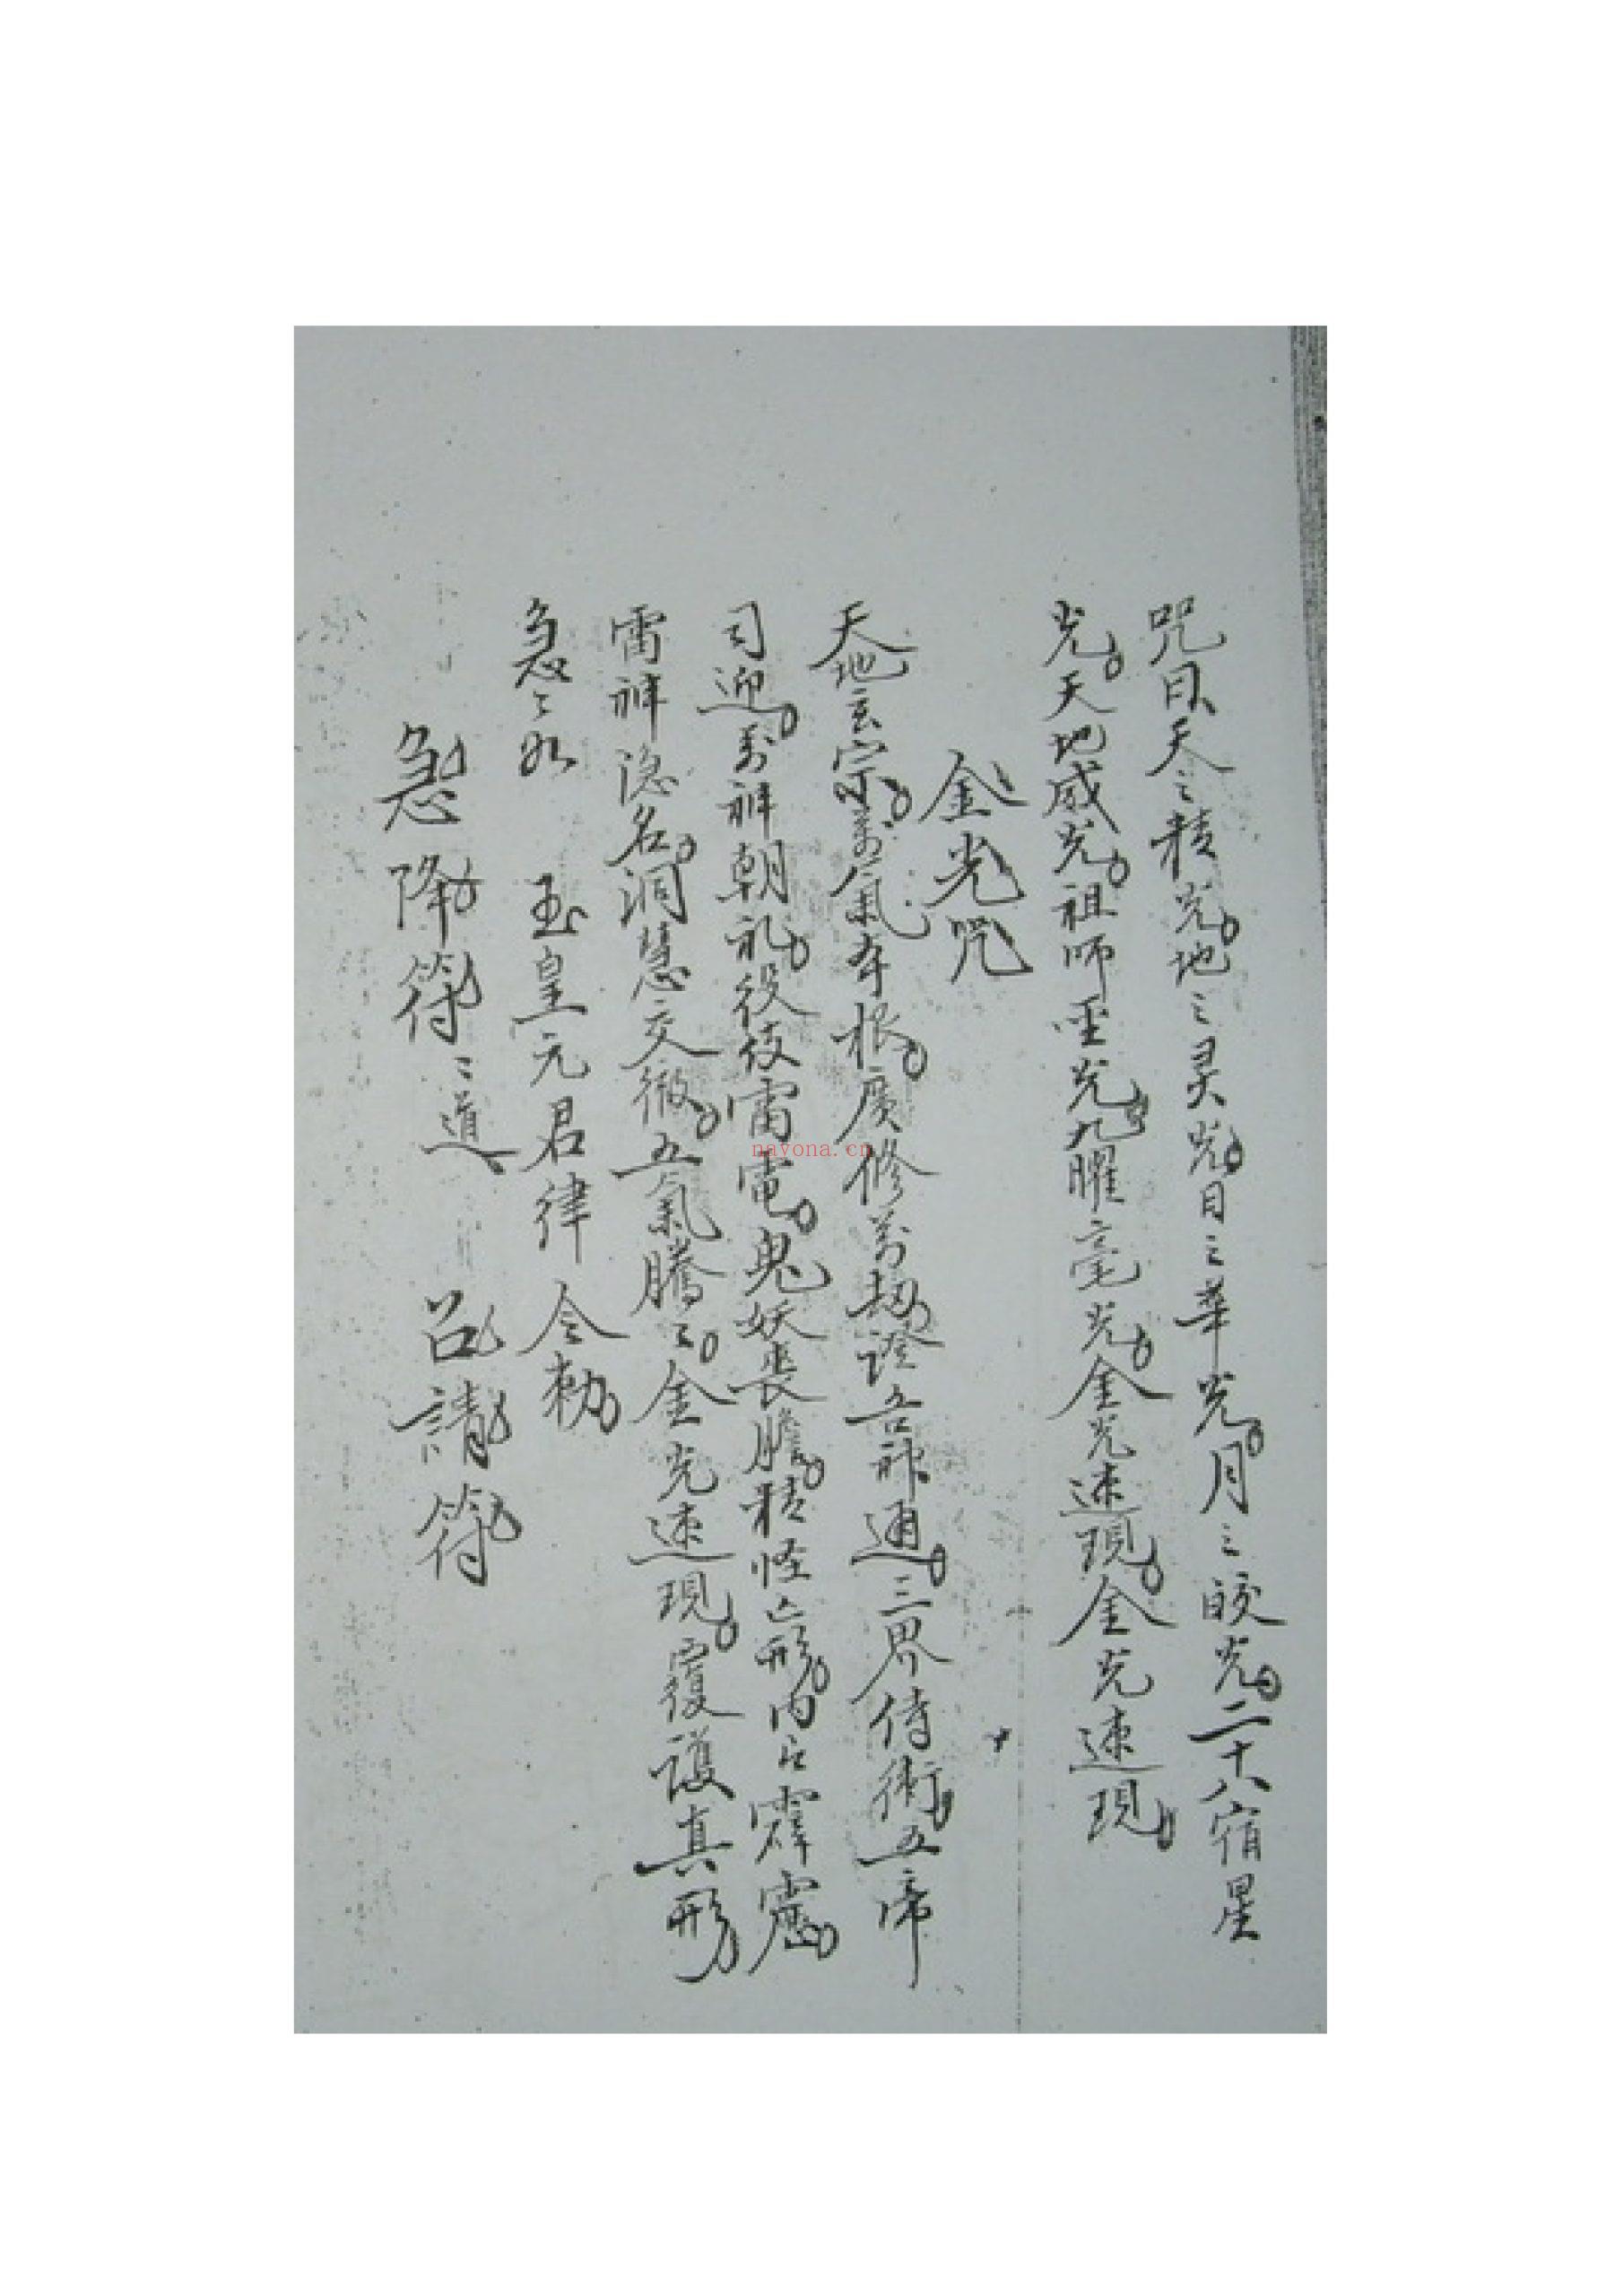 咒曰天之精光。地之灵光。日之華光。月之皎光。二十八宿星
光。天地威光。祖師圣光。九曜毫光。金光速現。金光速現。
金光咒
天地玄宗。萬氣本根。廣修萬劫。證吾神通。三界侍衛。五帝
司迎。万神朝礼。役使雷電。鬼妖丧膽。精怪亡形。内有霹靂。
雷神隐名。洞慧交徹。五氣騰〻。金光速現。覆護真形。
急〻如 玉皇元君律令勅。
急降符二道 召請符
nayona.cn